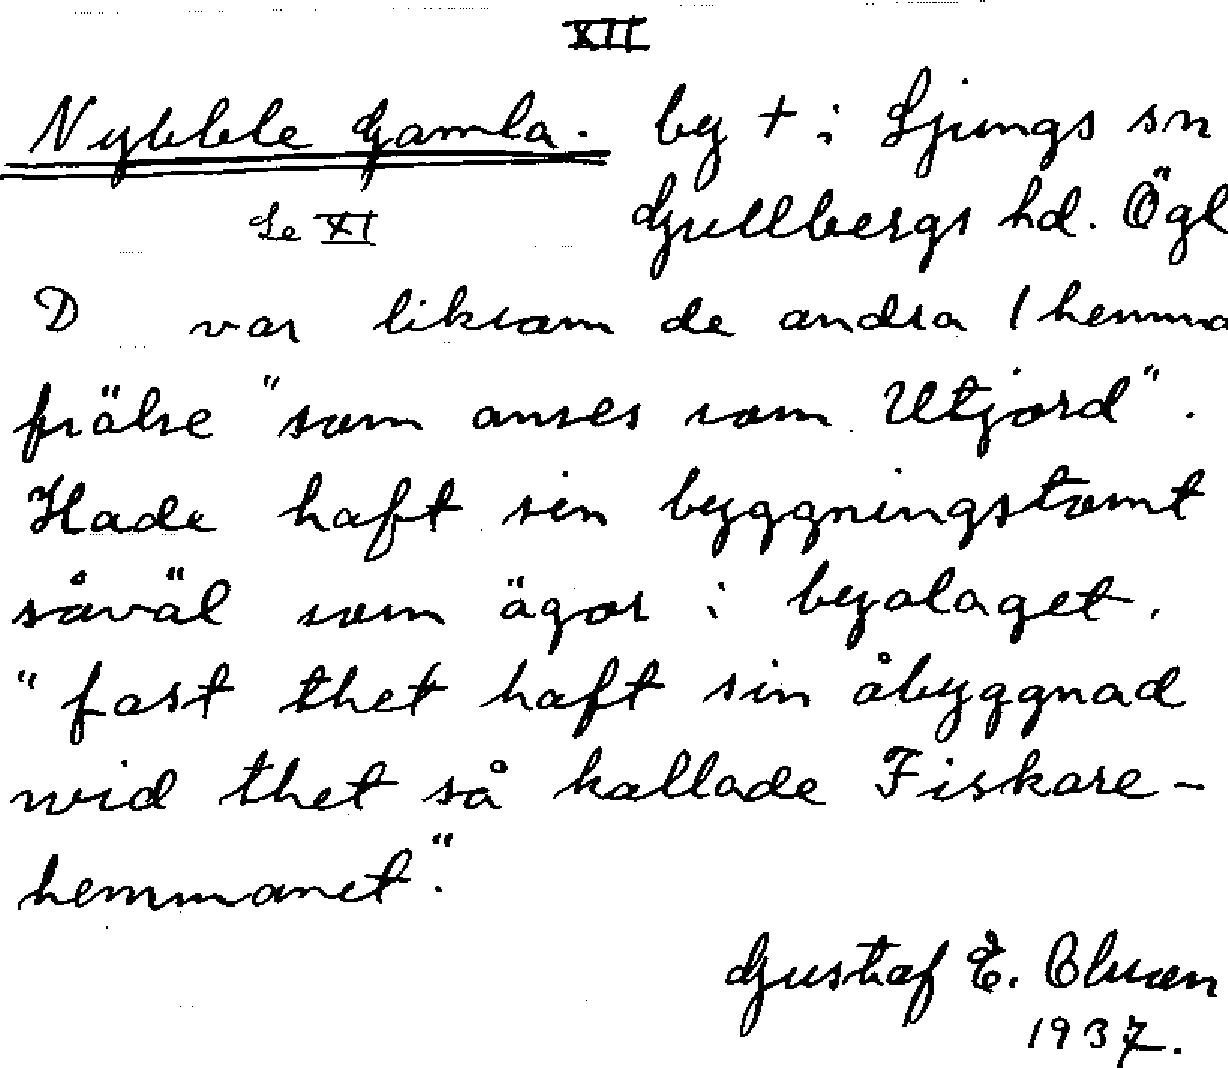 XII
Nybble Gamla. by + i Ljungs sn
Se XI Gullbergs hd. Ögl
D var liksom de andra 1 hemma
frälse "som anses som Utjord".
Hade haft sin byggningstomt
såväl som ägor i byalaget.
"fast thet haft sin åbyggnad
wid thet så kallade Fiskare-
hemmanet".
Gustaf E.
1937.